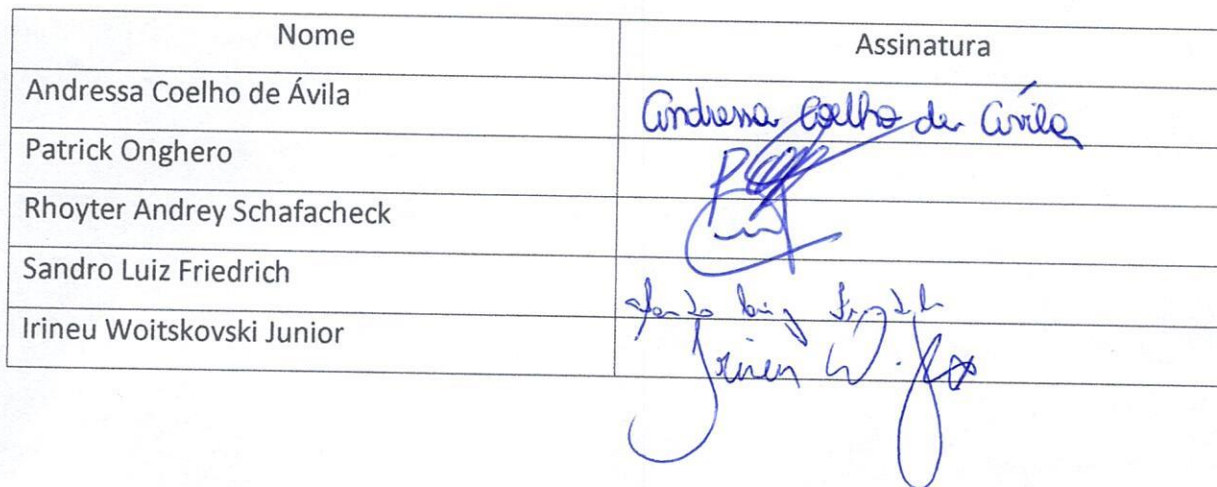 Nome Assinatura
Andressa Coelho de Ávila Andressa Coelho de Ávila
Patrick Onghero
Rhoyter Andrey Schafacheck
Sandro Luiz Friedrich
Irineu Woitskovski Junior Irineu W.